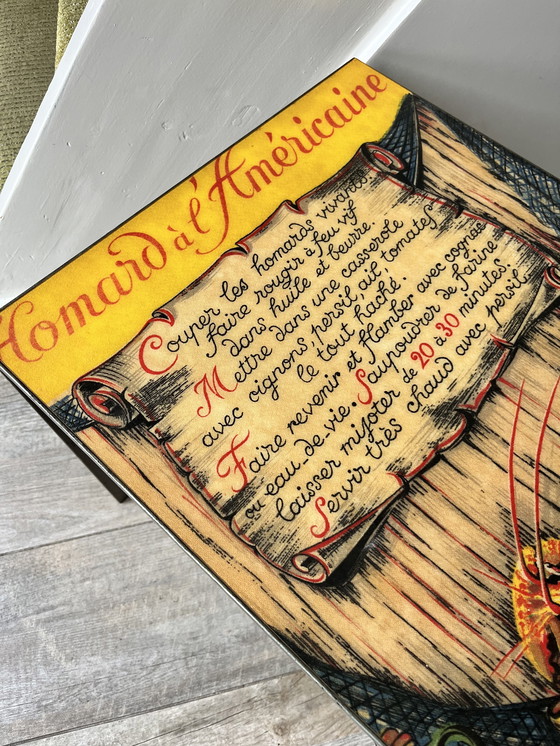 Homard à l'Américaine
Couper les homards vivants.
faire rougir à feu vif
dans huile et beurre.
Mettre dans une casserole
avec oignons, persil, ail, tomates
le tout haché.
Faire revenir et flamber avec cognac
ou eau-de-vie. Saupoudrer de farine
laisser mijoter de 20 à 30 minutes
Servir très chaud avec persil